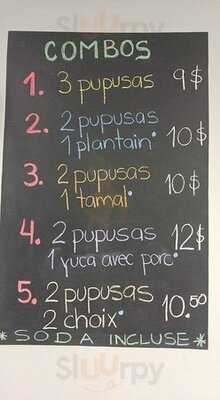 Sluurpy
COMBOS
1. 3 pupusas 9$
2. 2 pupusas
1 plantain* 10$
3. 2 pupusas
1 tamal* 10$
4. 2 pupusas 12$
1 yuca avec porc*
5. 2 pupusas
2 choix* 10.50
* SODA INCLUSE *
Sluurpy